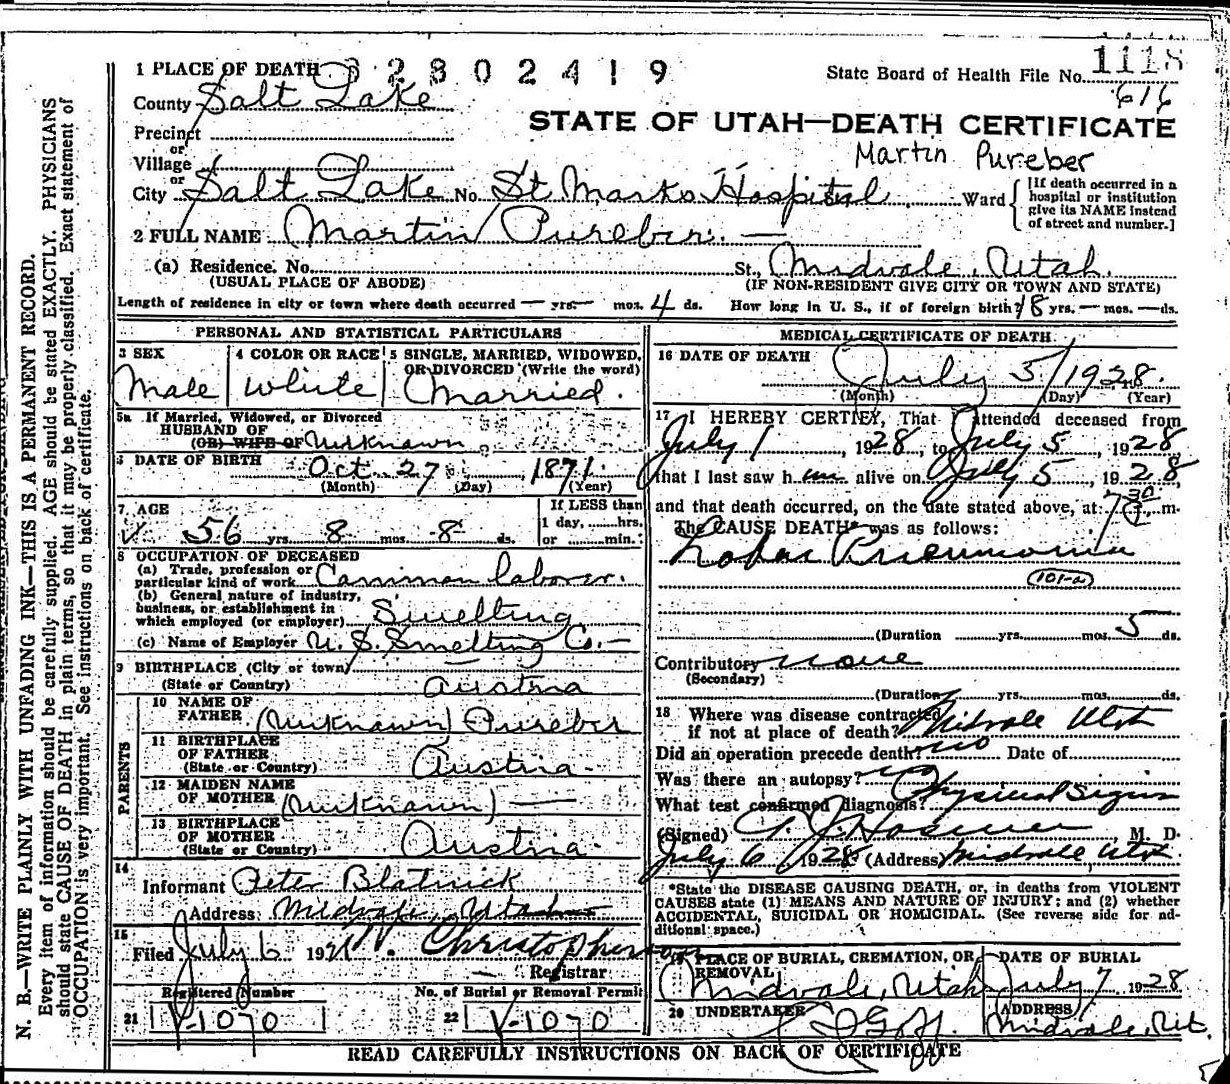 1 PLACE OF DEATH 32802419
State Board of Health File No. 1118
616
County Salt Lake
STATE OF UTAH—DEATH CERTIFICATE
Precinct
or
Village
Martin Pureber
or
City Salt Lake No. St Marks Hospital Ward [If death occurred in a hospital or institution give its NAME instead of street and number.]
2 FULL NAME Martin Pureber. —
(a) Residence. No. St., Midvale, Utah.
(USUAL PLACE OF ABODE) (IF NON-RESIDENT GIVE CITY OR TOWN AND STATE)
Length of residence in city or town where death occurred — yrs. — mos. 4 ds. How long in U. S., if of foreign birth? 18 yrs. — mos. — ds.
PERSONAL AND STATISTICAL PARTICULARS
3 SEX 4 COLOR OR RACE 5 SINGLE, MARRIED, WIDOWED, OR DIVORCED (Write the word)
Male White Married.
5a If Married, Widowed, or Divorced
HUSBAND OF
(OR) WIFE OF Unknown
6 DATE OF BIRTH Oct. 27, 1871.
(Month) (Day) (Year)
7. AGE If LESS than
56 yrs. 8 mos. 8 ds. 1 day, hrs.
or min.
8 OCCUPATION OF DECEASED
(a) Trade, profession or
particular kind of work Common laborer.
(b) General nature of industry,
business, or establishment in
which employed (or employer) Smelting
(c) Name of Employer U. S. Smelting Co. —
9 BIRTHPLACE (City or town) —
(State or Country) Austria
PARENTS
10 NAME OF
FATHER (Unknown) Pureber
11 BIRTHPLACE
OF FATHER
(State or Country) Austria
12 MAIDEN NAME
OF MOTHER (Unknown) —
13 BIRTHPLACE
OF MOTHER
(State or Country) Austria.
14
Informant Peter Blatnick
Address Midvale, Utah
15
Filed July 6 192 Christopherson
Registrar
Registered Number No. of Burial or Removal Permit
21 V-1070 22 V-1070
MEDICAL CERTIFICATE OF DEATH
16 DATE OF DEATH
July 5/1928.
(Month) (Day) (Year)
17 I HEREBY CERTIFY, That I attended deceased from
July 1, 1928, to July 5, 1928
that I last saw him alive on July 5, 1928,
and that death occurred, on the date stated above, at 7 30 m.
The CAUSE DEATH* was as follows:
Lobar Pneumonia
101-a
(Duration yrs. mos. 5 ds.
Contributory none
(Secondary)
(Duration yrs. mos. ds.
18 Where was disease contracted
if not at place of death? Midvale Utah
Did an operation precede death? no Date of
Was there an autopsy? no
What test confirmed diagnosis? Physical Signs
(Signed) M. D.
July 6, 1928 (Address) Midvale, Utah
*State the DISEASE CAUSING DEATH, or, in deaths from VIOLENT
CAUSES state (1) MEANS AND NATURE OF INJURY; and (2) whether
ACCIDENTAL, SUICIDAL OR HOMICIDAL. (See reverse side for ad-
ditional space.)
19 PLACE OF BURIAL, CREMATION, OR REMOVAL DATE OF BURIAL
Midvale, Utah July 7 1928
20 UNDERTAKER ADDRESS
Goff. Midvale, Ut.
READ CAREFULLY INSTRUCTIONS ON BACK OF CERTIFICATE
N. B.—WRITE PLAINLY WITH UNFADING INK—THIS IS A PERMANENT RECORD.
Every item of information should be carefully supplied. AGE should be stated EXACTLY. PHYSICIANS
should state CAUSE OF DEATH in plain terms, so that it may be properly classified. Exact statement of
OCCUPATION is very important. See instructions on back of certificate.